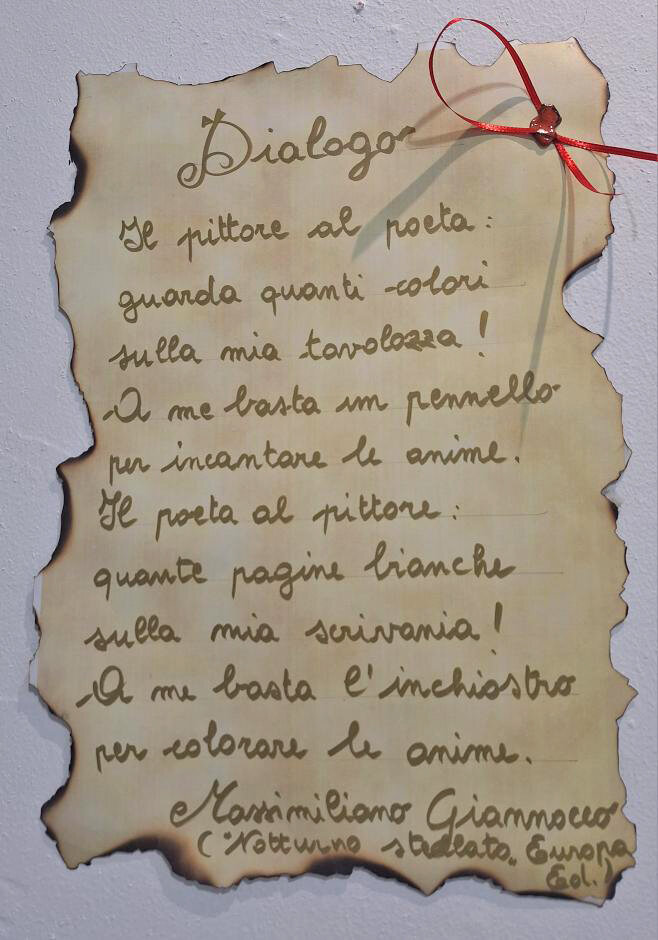 Dialogo
Il pittore al poeta:
guarda quanti colori
sulla mia tavolozza!
A me basta un pennello
per incantare le anime.
Il poeta al pittore:
quante pagine bianche
sulla mia scrivania!
A me basta l'inchiostro
per colorare le anime.
Massimiliano Giannocco
("Notturno stellato„ Europa
Ed.)